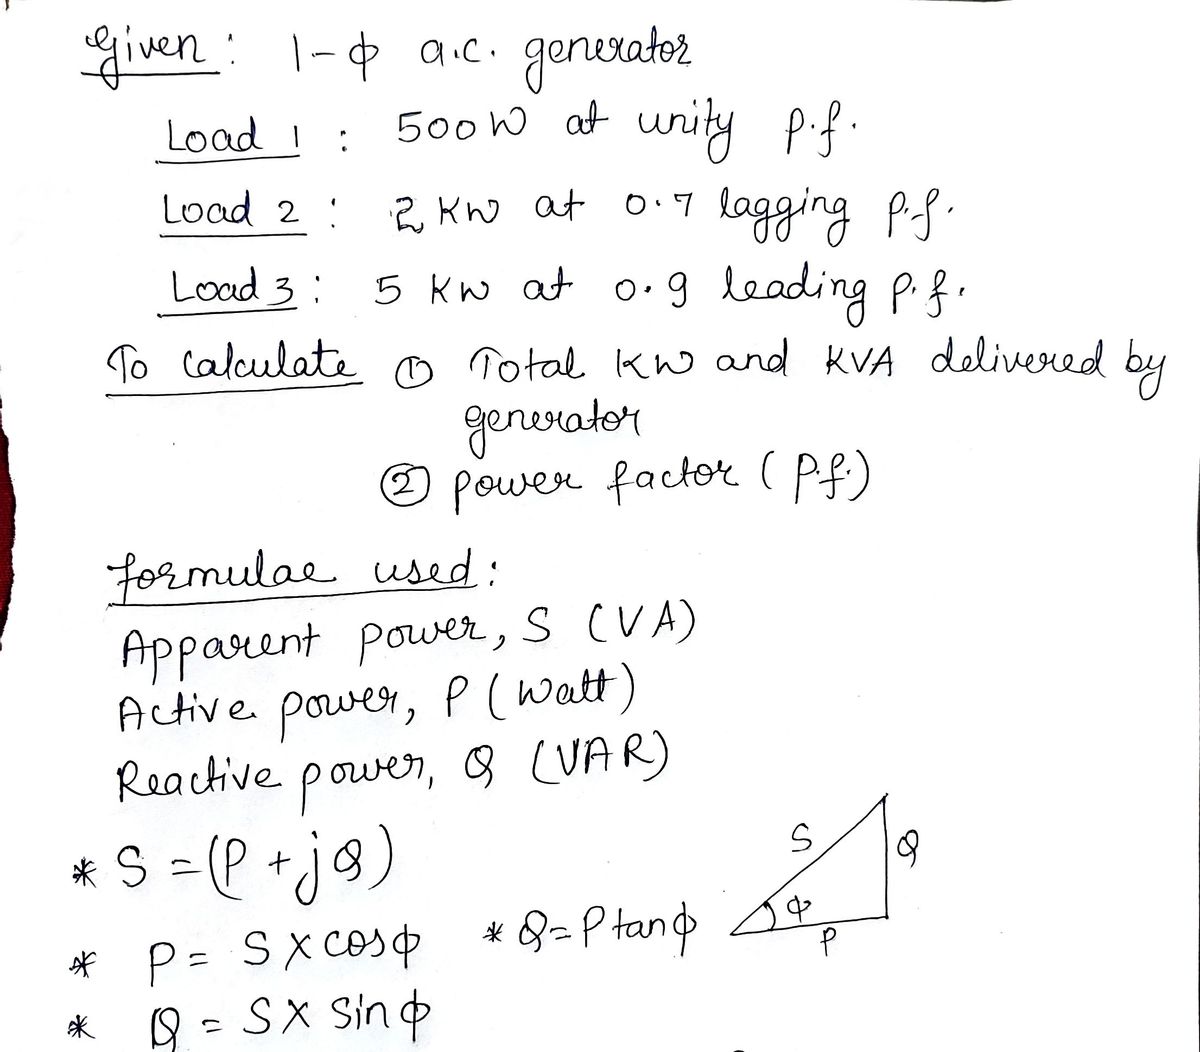 Given: 1-ф a.c. generator
Load 1 : 500 W at unity p.f.
Load 2 : 2 KW at 0.7 lagging p.f.
Load 3 : 5 KW at 0.9 leading p.f.
To calculate ① Total KW and KVA delivered by
generator
② power factor (p.f.)
formulae used:
Apparent power, S (VA)
Active power, P (Watt)
Reactive power, Q (VAR)
* S = (P + jQ)
S
Q
ф
P
* P = S X cosф * Q = P tanф
* Q = S X sinф